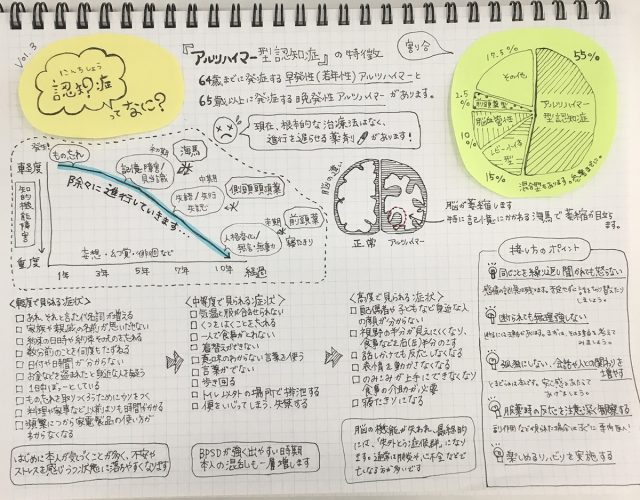 Vol.3
にんちしょう
認知症
ってなに?
『アルツハイマー型認知症』の特徴
64歳までに発症する早発性(若年性)アルツハイマーと
65歳以上に発症する晩発性アルツハイマーがあります。
現在、根本的な治療法はなく、
進行を遅らせる薬剤があります!
割合
17.5%
55%
その他
2.5%
前頭葉型
アルツハイマー
型認知症
脳血管性
10%
レビー小体
型
15%
発生!
もの忘れ
初期
海馬
軽度
記憶障害/
見当識
中期
側頭頭頂葉
失語/失行
失認
末期
前頭葉
知的機能障害
徐々に進行していきます…
妄想・幻覚・徘徊など
寝たきり
重度
1年 3年 5年 7年 10年 経過
脳の違い
正常 アルツハイマー
脳が萎縮します
特に記憶にかかわる海馬で萎縮が目立ちます。
<軽度で見られる症状>
あれ、それと言えど名詞が増える
家族や親戚の名前が思いだせない
約束の日時や約束そのものを忘れる
数分前のことを何度もたずねる
日付や時間が分からない
お金などを盗まれたと身近な人を疑う
1日中ぼーっとしている
もの忘れを取りつくろうためにウソをつく
料理や家事など以前よりも時間がかかる
頻繁につかう家電製品の使い方が
わからなくなる
はじめに本人が気づくことが多く、不安や
ストレスを感じうつ状態に落ちやすくなります
<中等度で見られる症状>
気温と服が合わせられない
くつをはくことを忘れる
一人で食事がとれない
着替えができない
意味のわからない言葉を使う
言葉がでない
歩き回る
トイレ以外の場所で排泄する
便をいじってしまう、失禁する
BPSDが強く出やすい時期
本人の混乱も一層増します
<高度で見られる症状>
配偶者や子どもなど身近な人
の顔が分からない
視野の半分が見えにくくなり、
食事などを(左)半分のこす
話しかけても反応しなくなる
表情を動かさなくなる
のみこみが上手にできなくなり
食事の介助が必要
寝たきりになる
脳の機能が失われ、最終的
には、「失外とう症候群」になり
ます。
接し方のポイント
同じことを繰り返し聞かれても怒らない
困られても無理強いしない
孤独にしない、会話や人との関わりを
増やす
服薬時の反応を注意深く観察する
楽しめるリハビリを実施する